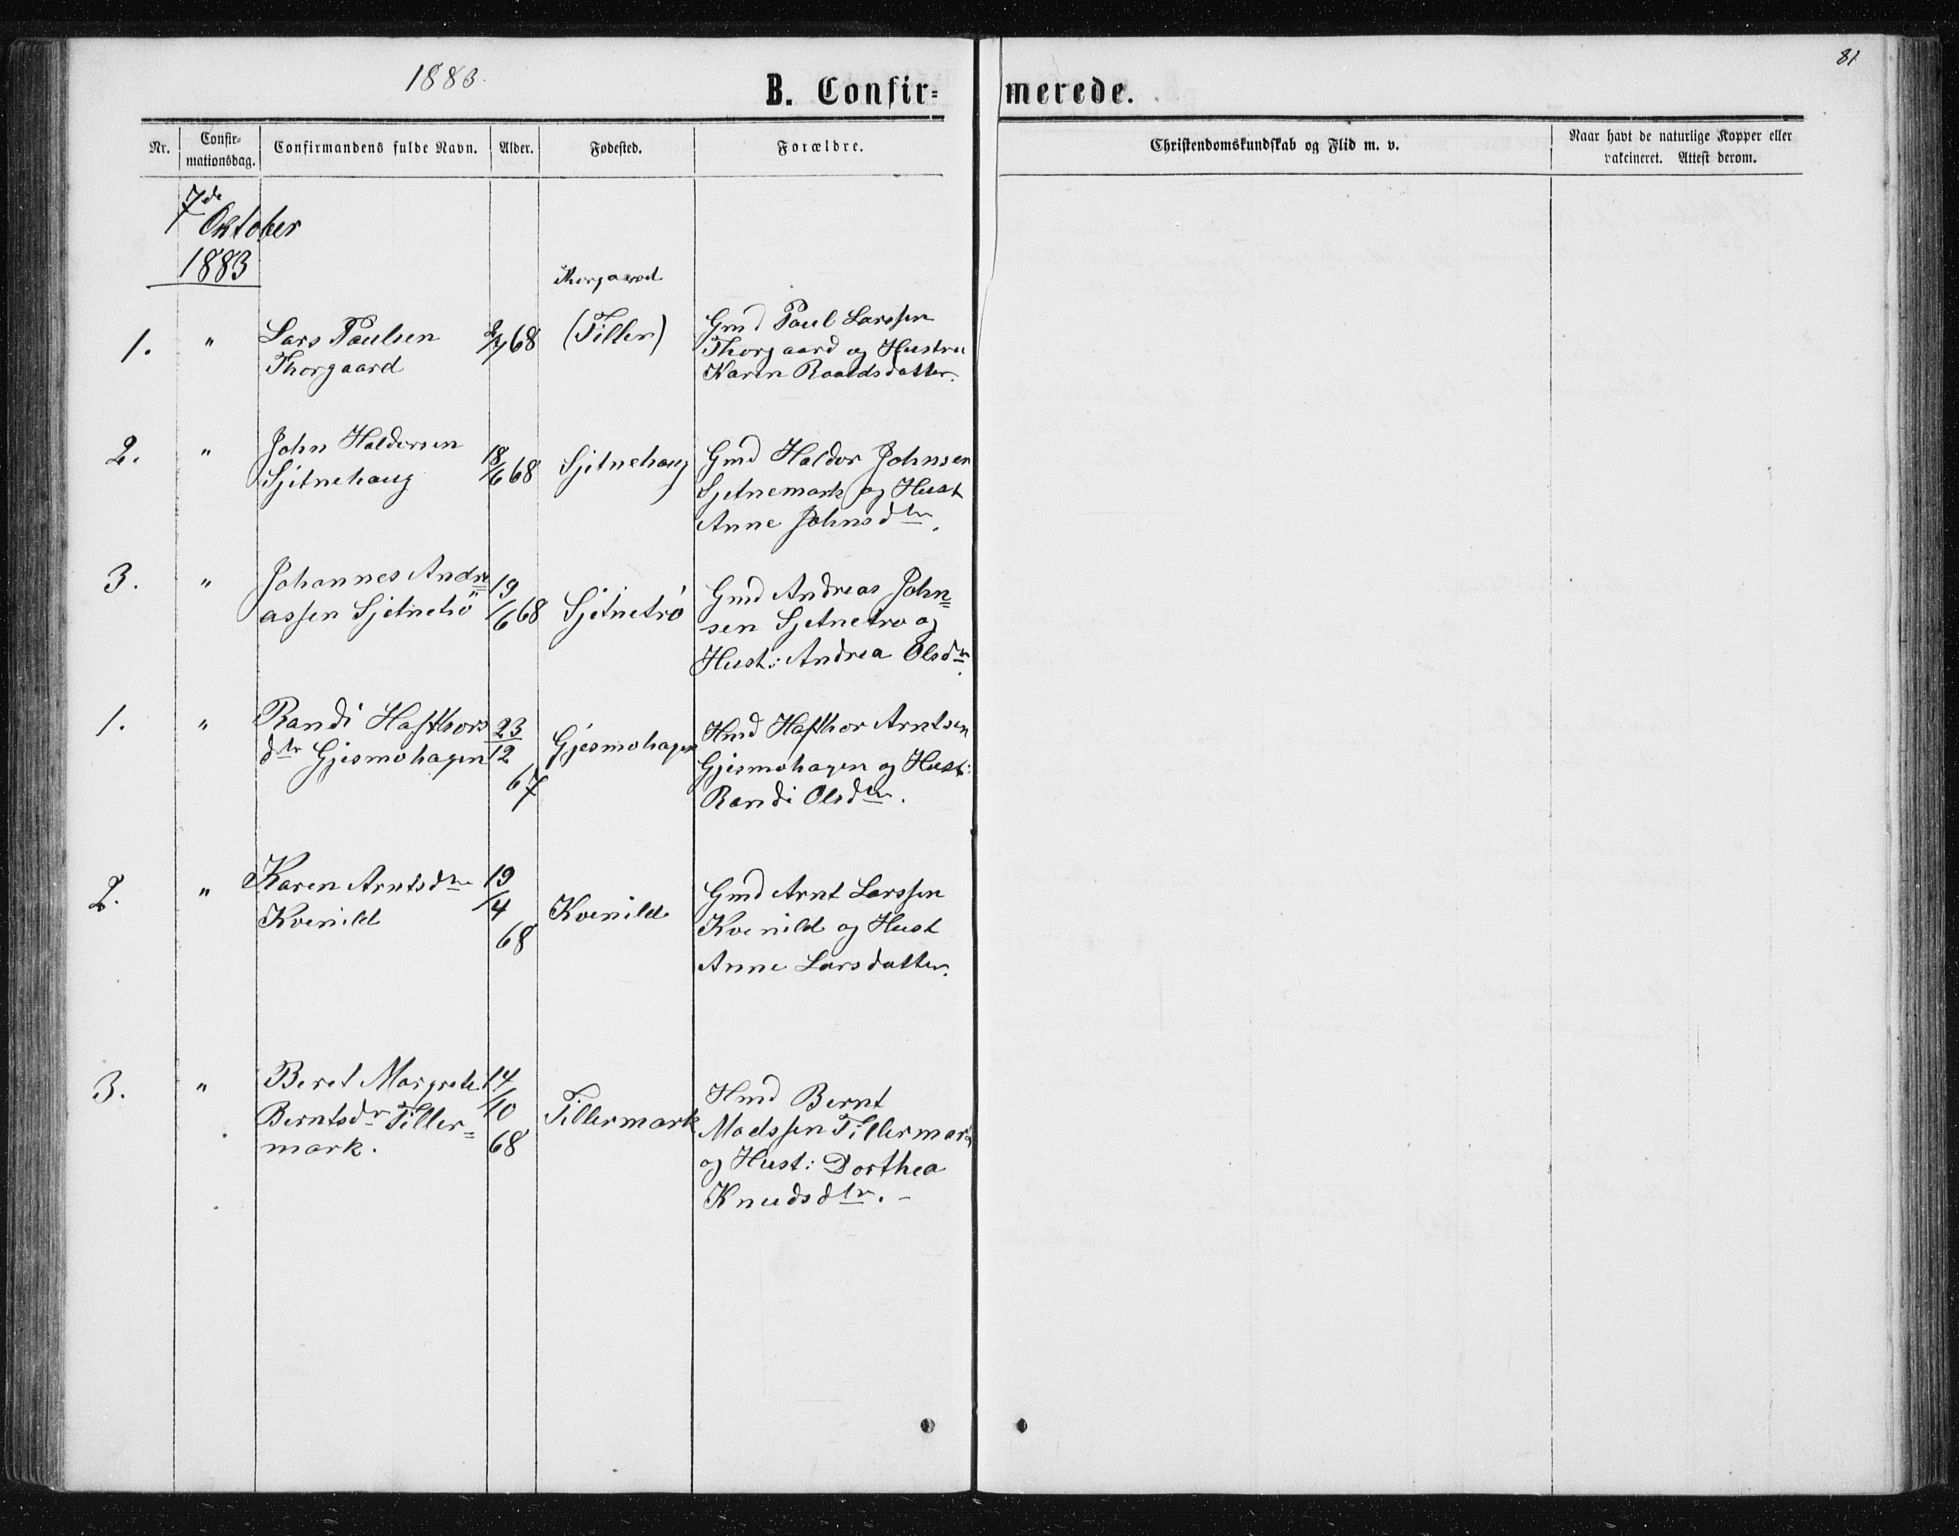 1883.
81
B. Confir=
merede.
Nr.
Confir-
mationsdag.
Confirmandens fulde Navn.
Alder.
Fødested.
Forældre.
Christendomskundskab og Flid m. v.
Naar havt de naturlige Kopper eller
vakcineret. Attest derom.
7de
Oktober
1883
Thorgaard
1. " Lars Paulsen 68 (Tiller) Gmd Paul Larssen
Thorgaard Thorgaard og Hustru
Karen Roaldsdatter.
2. " John Haldorsen 18/6 68 Sjetnehaug Gmd Haldor Johnsen
Sjetnehaug Sjetnemark og Hust
Anne Johnsdtr.
3. " Johannes Andre= 19/6 68 Sjetnetrö Gmd Andreas John=
assen Sjetnetrö sen Sjetnetro og
Hust: Andrea Olsdtr.
1. " Randi Hafthors 23/12 67 Gjesmohagen Hmd Hafthor Arntsen
dtr Gjesmohagen Gjesmohagen og Hust:
Randi Olsdtr.
2. " Karen Arntsdtr 19/4 68 Kvenild Gmd Arnt Larssen
Kvenild Kvenild og Hust
Anne Larsdatter.
3. " Beret Margrete 14/10 68 Tillermark Hmd Bernt
Berntsdr Tiller= Madssen Tillermark
mark. og Hust: Dorthea
Knudsdtr. -